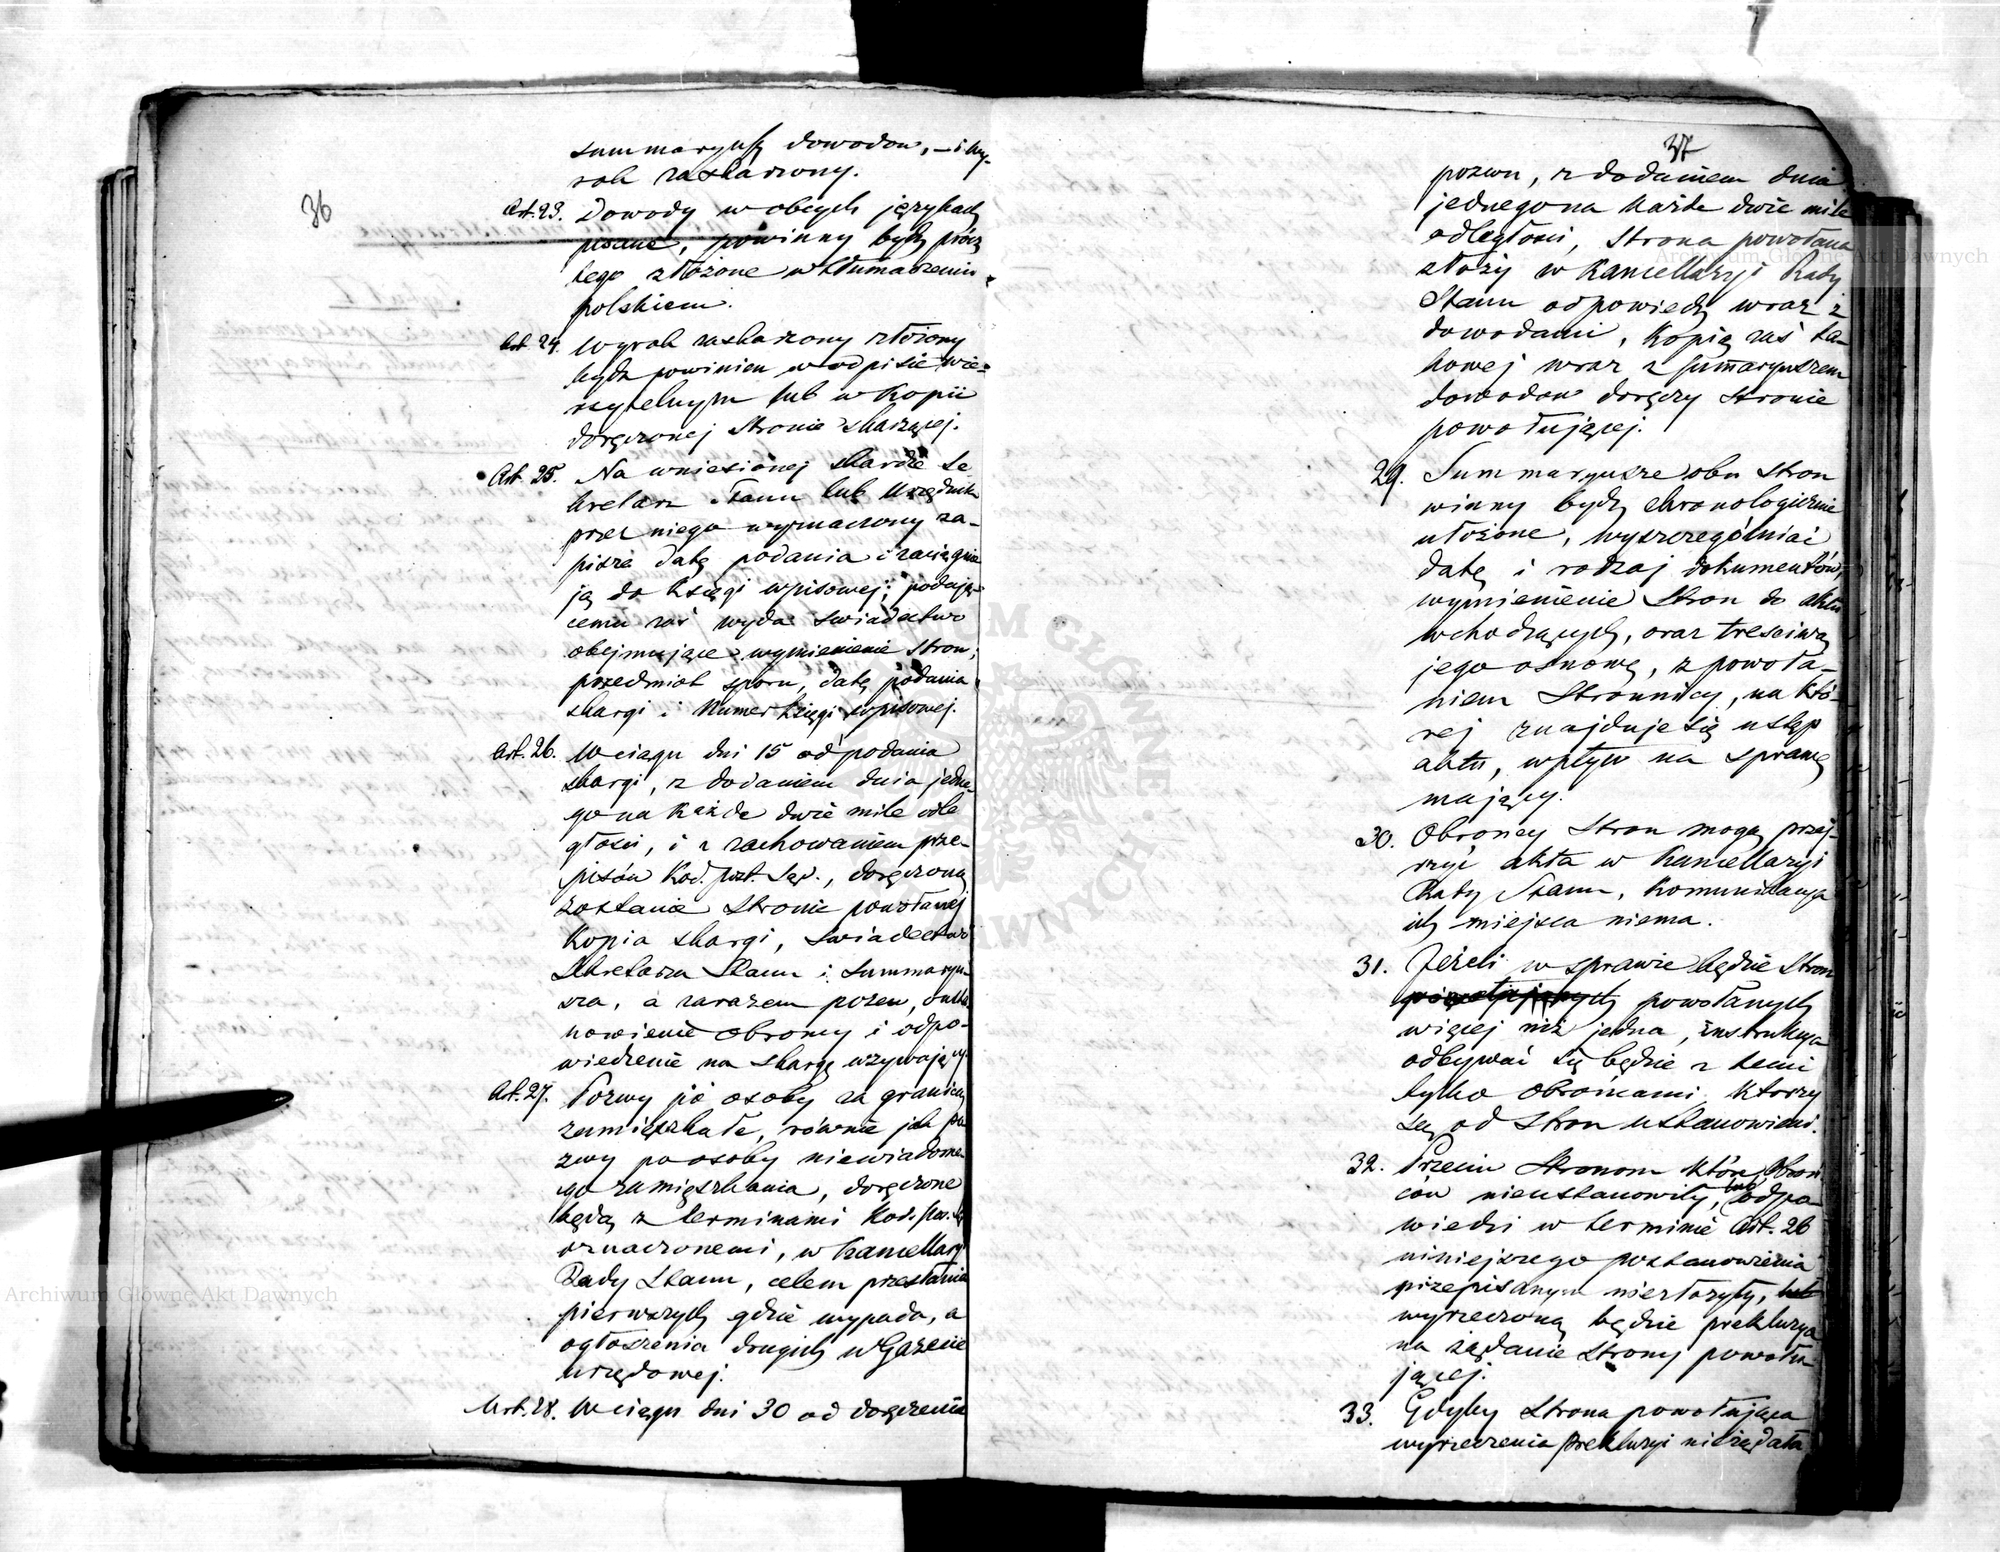 36
summaryusz dowodow, – i wy-
rok zaskarzony.
Art. 23. Dowody w obcych językach
pisane, powinny bydź prócz
tego złożone w tłumaczeniu
polskiem.
Art. 24. Wyrok zaskarzony złożony
bydź powinien w odpisie wie-
rzytelnym lub w kopii
doręczonej Stronie skarżącej.
Art. 25. Na wniesionej skardze Se-
kretarz Stanu lub Urzędnik
przez niego wyznaczony za-
pisze datę podania i zaciągnie
ją do księgi wpisowej; podają-
cemu zaś wyda świadectwo
obejmujące wymienienie Stron,
przedmiot sporu, datę podania
skargi i Numer księgi wpisowej.
Art. 26. W ciągu dni 15 od podania
skargi, z dodaniem dnia jedne-
go na każde dwie mile odle
głości, i z zachowaniem prze-
pisów Kod. post. Sąd., doręczoną
zostanie Stronie powołanej
Kopia skargi, świadectwa
Sekretarza Stanu i summaryu-
sza, a zarazem pozew,
nowienie obrony i odpo-
wiedzenie na skargę wzywający.
Art. 27. Pozwy po osoby za granicą
zamieszkałe, równie jak po
zwy po osoby niewiadome-
go zamieszkania, doręczone
będą z terminami Kod. Pos. Są
oznaczonemi, w Kancellaryi
Rady Stanu, celem przesłania
pierwszych gdzie wypada, a
ogłoszenia drugich w Gazecie
urzędowej.
Art. 28. W ciągu dni 30 od doręczenia
37
pozwu, z dodaniem dnia
jednego na każde dwie mile
odległości, Strona powołana
złoży w Kancellaryi Rady
Stanu odpowiedź wraz z
dowodami, Kopię zaś ta-
kowej wraz z summaryuszem
dowodow doręczy Stronie
powołującej.
29. Summaryusze obu Stron
winny bydź chronologicznie
ułożone, wyszczególniać
datę i rodzaj dokumentów,
wymienienie Stron do aktu
wchodzących, oraz treściwą
jego osnowę, z powoła-
niem Stronnicy, na któ-
rej znajduje się ustęp
aktu, wpływ na sprawę
mający.
30. Obrońcy Stron mogą przej-
rzyć akta w Kancellaryi
Rady Stanu, Komunikacya
ich miejsca niema.
31. Jeżeli w sprawie będzie Stron
powołanych
więcej niż jedna, instrukcya
odbywać się będzie z temi
tylko obrońcami, ktorzy
są od Stron ustanowieni.
32. Przeciw Stronom które Obroń-
ców nieustanowiły, lub odpo
wiedzi w terminie Art. 26
niniejszego postanowienia
przepisanym niezłożyły, lub
wyrzeczoną będzie prekluzya
na żądanie Strony powołu
jącej.
33. Gdyby Strona powołująca
wyrzeczenia prekluzyi nieżądała
Archiwum Główne Akt Dawnych
Archiwum Główne Akt Dawnych